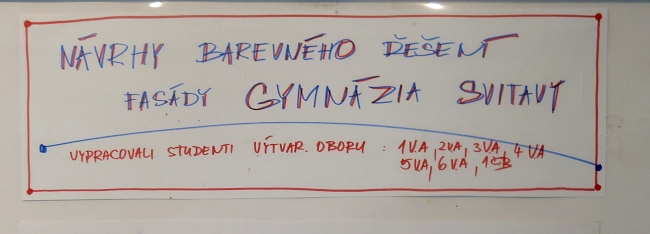 NÁVRHY BAREVNÉHO ŘEŠENÍ
FASÁDY GYMNÁZIA SVITAVY
VYPRACOVALI STUDENTI VÝTVAR. OBORU : 1VA, 2VA, 3VA, 4VA
5VA, 6VA, 1EB